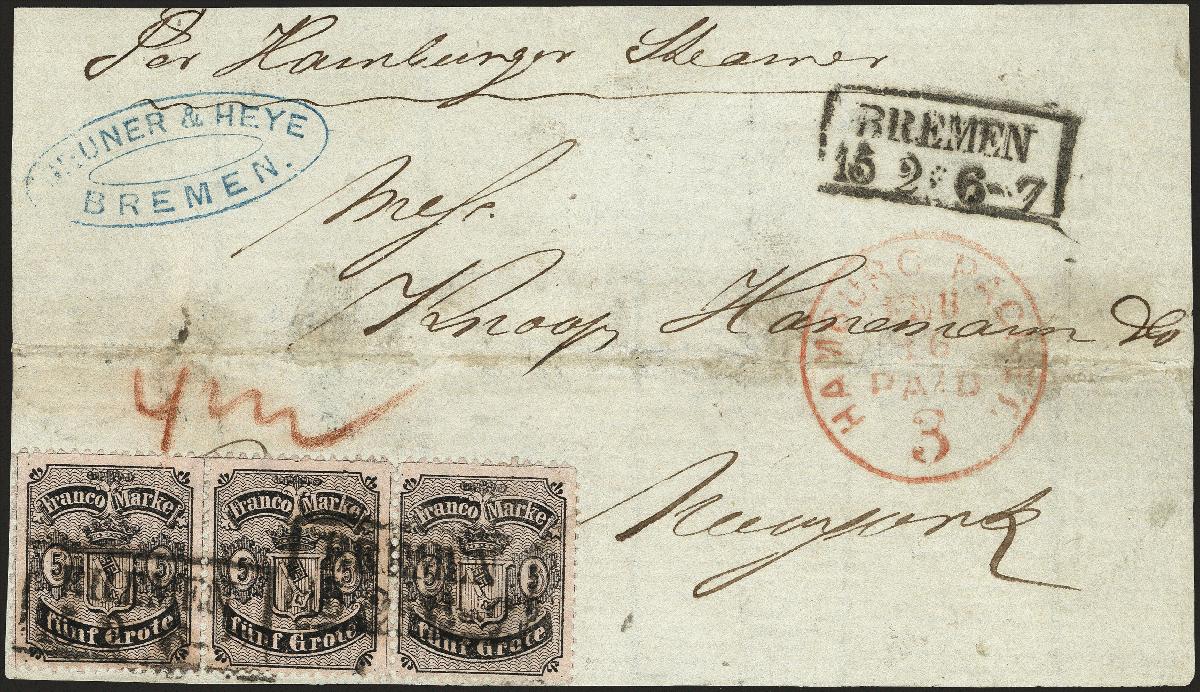 Per Hamburger Steamer
BRUNER & HEYE
BREMEN.
BREMEN
15 2 6-7
Mess.
Knoop Hanemann & Co
HAMBURG PACKET.
16
PAID
3
4
Newyork
Franco Marke
5 5
fünf Grote
Franco Marke
5 5
fünf Grote
Franco Marke
5 5
fünf Grote